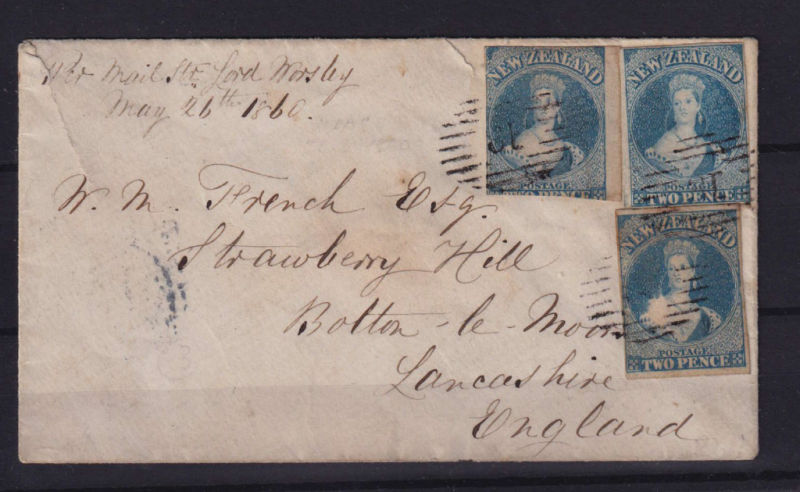 Per Mail Str. Lord Worsley
May 26th 1860.
NEW ZEALAND
POSTAGE
TWO PENCE
NEW ZEALAND
POSTAGE
TWO PENCE
W. M. French Esq.
Strawberry Hill
Bolton-le-Moors
Lancashire
England
NEW ZEALAND
POSTAGE
TWO PENCE